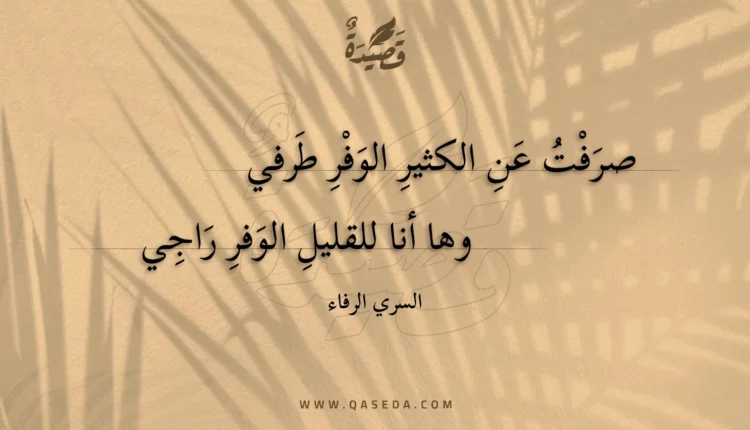 قَصِيْدَةٌ
صرَفْتُ عَنِ الكثيرِ الوَفْرِ طَرفي
وها أنا للقليلِ الوَفرِ رَاجِي
السري الرفاء
WWW.QASEDA.COM